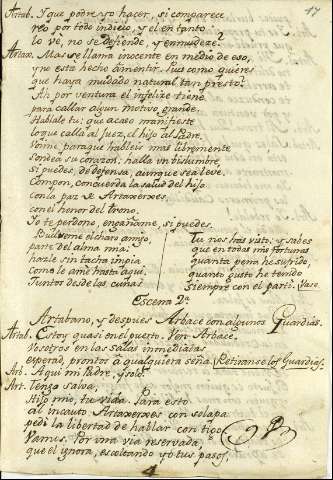 17
Artab. Y que podre yo hacer, si comparece
reo por todo indicio, y el entanto
lo vé, no se defiende, y enmudeze?
Artax. Mas se llama inocente en medio de eso,
y no está hecho a mentir. Pues como quieres
que haya mudado natural tan presto?
Ah, por ventura el infelize tiene
para callar algun motivo grande.
Hablale tu: que acaso manifieste
lo que calla al Juez, el hijo al Padre.
Voime, para que hableis mas libremente
sondea su corazon: halla un vislumbre,
si puedes, de defensa, aunque sea leve.
Compon, concuerda la salud del hijo
con la paz de Artaxerxes,
con el honor del trono.
Yo te perdono, engañame, si puedes.
Buelveme el claro amigo,
parte del alma mia:
hazle sin tacha impia
como le amé hasta aqui.
Juntos desde las cunas
Tu nos has visto, y sabes
que en todas mis fortunas
quanta pena he sufrido,
quanto gusto he tenido
Siempre con el partí. Vase
Escena 2ª
Artabano, y despues Arbace con algunos Guardias.
Artab. Estoy quasi en el puerto. Ven Arbace.
Vosotros en las salas inmediatas
esperad, prontos á qualquiera seña. Retiranse los Guardias.
Arb. Aqui mi Padre, y solo?
Art. Tengo salva,
Hijo mio, tu vida. Para esto
al incauto Artaxerxes con solapa
pedi la libertad de hablar con tigo.
Vamos. Por una via reservada,
que él ignora, escoltando yo tus pasos,